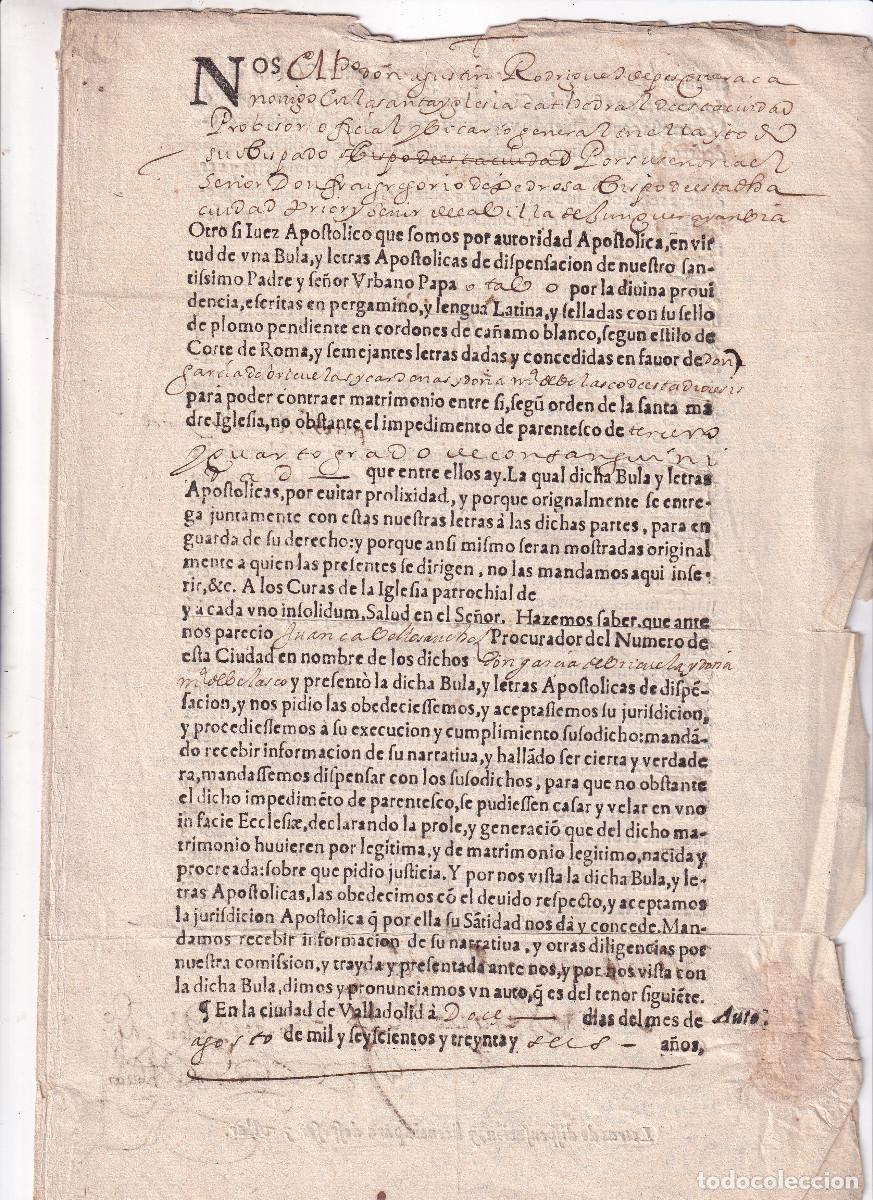 NOS El Ldo don agustin Rodriguez de
nonigo En la santa yglesia catthedral desta ciudad
Probisor oficial y bicario general en ella y todo
su obispado obispo desta ciudad Por su señoria el
Señor Don frai gregorio de Pedrosa obispo desta dha
ciudad Prior y señor de la billa de Junquera
Otro si Iuez Apostolico que somos por autoridad Apostolica, en vir
tud de vna Bula, y letras Apostolicas de dispensacion de nuestro san-
tissimo Padre y señor Vrbano Papa otabo por la diuina proui
dencia, escritas en pergamino, y lengua Latina, y selladas con su sello
de plomo pendiente en cordones de cañamo blanco, segun estilo de
Corte de Roma, y semejantes letras dadas y concedidas en fauor de don
garcia de briçuelas y cardenas y doña mª de belasco desta diocesis
para poder contraer matrimonio entre si, segũ orden de la santa ma
dre Iglesia, no obstante el impedimento de parentesco de tercero
y quarto grado de consanguini
dad que entre ellos ay. La qual dicha Bula y letras
Apostolicas, por euitar prolixidad, y porque orignalmente se entre-
ga juntamente con estas nuestras letras à las dichas partes, para en
guarda de su derecho: y porque ansi mismo seran mostradas original
mente a quien las presentes se dirigen, no las mandamos aqui inse-
rir, &c. A los Curas de la Iglesia patrochial de
y a cada vno insolidum, Salud en el Señor. Hazemos saber, que ante
nos parecio Juan Procurador del Numero de
esta Ciudad en nombre de los dichos don garcia de briçuela y doña
mª de belasco y presentò la dicha Bula, y letras Apostolicas de dispẽ-
sacion, y nos pidio las obedeciessemos, y aceptassemos su jurisdicion,
y procediessemos à su execucion y cumplimiento susodicho: mandã-
do recebir informacion de su narratiua, y hallãdo ser cierta y verdade
ra, mandassemos dispensar con los susodichos, para que no obstante
el dicho impedimẽto de parentesco, se pudiessen casar y velar en vno
in facie Ecclesiæ, declarando la prole, y generaciõ que del dicho ma-
trimonio huuieren por legitima, y de matrimonio legitimo, nacida y
procreada: sobre que pidio justicia. Y por nos vista la dicha Bula, y le-
tras Apostolicas, las obedecimos cõ el deuido respecto, y aceptamos
la jurisdicion Apostolica q̃ por ella su Sãtidad nos dà y concede. Man-
damos recebir informacion de su narratiua, y otras diligencias por
nuestra comission, y trayda y presentada ante nos, y por nos vista con
la dicha Bula, dimos y pronunciamos vn auto, q̃ es del tenor siguiẽte.
¶ En la ciudad de Valladolid à Doce dias del mes de Auto.
agosto de mil y seyscientos y treynta y seis años,
todocoleccion